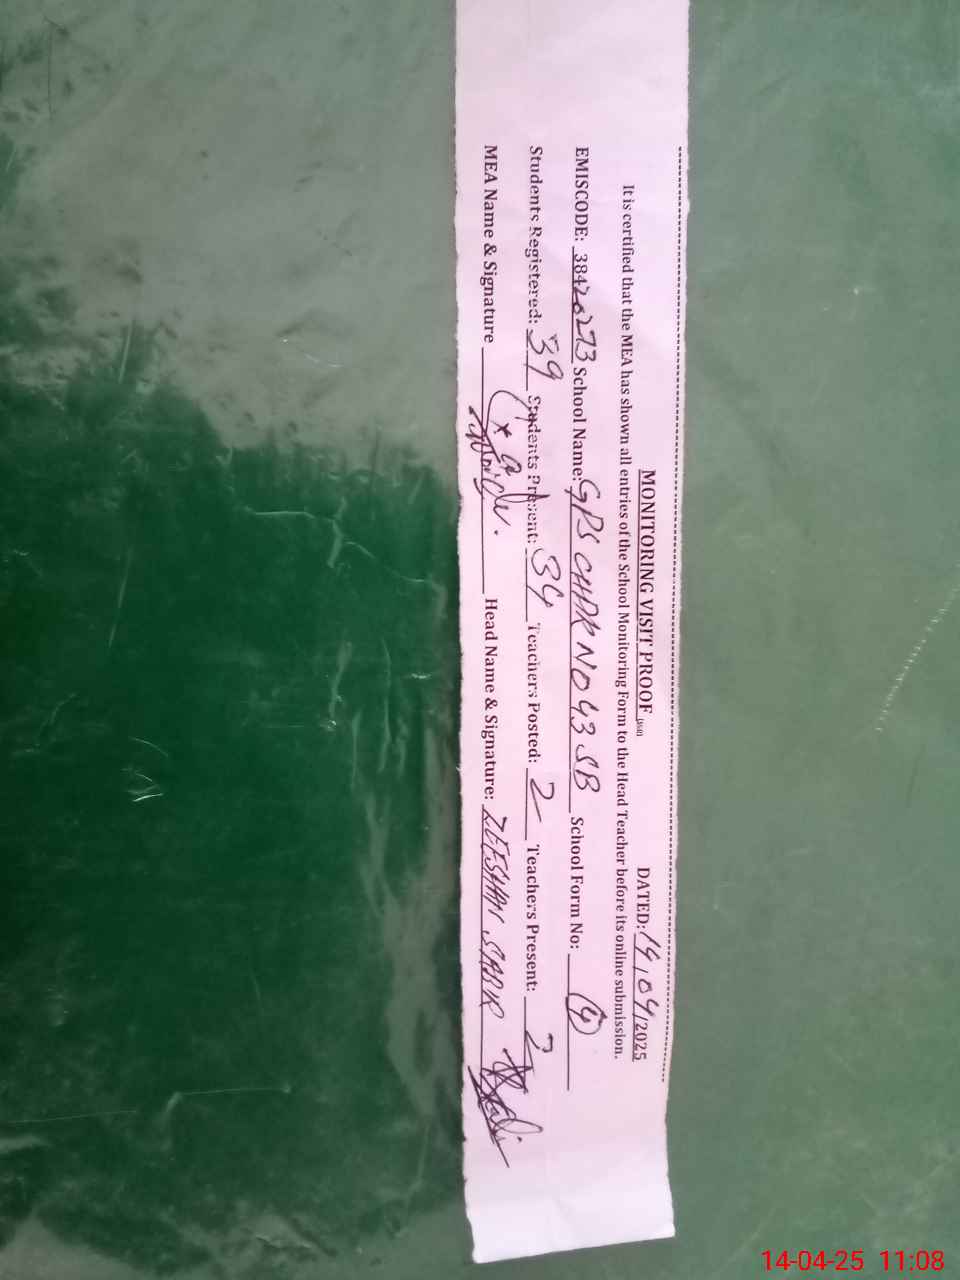 MONITORING VISIT PROOF DATED: 14/04/2025
It is certified that the MEA has shown all entries of the School Monitoring Form to the Head Teacher before its online submission.
EMISCODE: 38420273 School Name: GPS CHAK NO 43 SB School Form No: 4
Students Registered: 39 Students Present: 34 Teachers Posted: 2 Teachers Present: 2
MEA Name & Signature Head Name & Signature: ZEESHAN SABIR
14-04-25 11:08